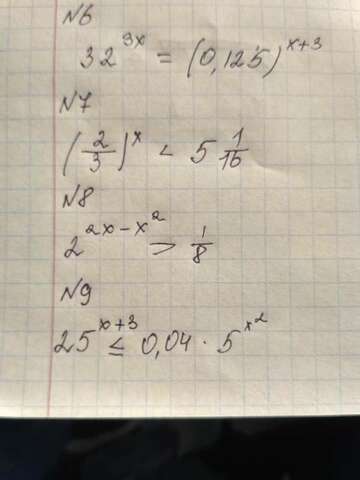 N6
32^{3x} = (0,125)^{x+3}
N7
(2/3)^x < 5 1/16
N8
2^{2x-x^2} > 1/8
N9
25^{x+3} ≤ 0,04 · 5^{x^2}